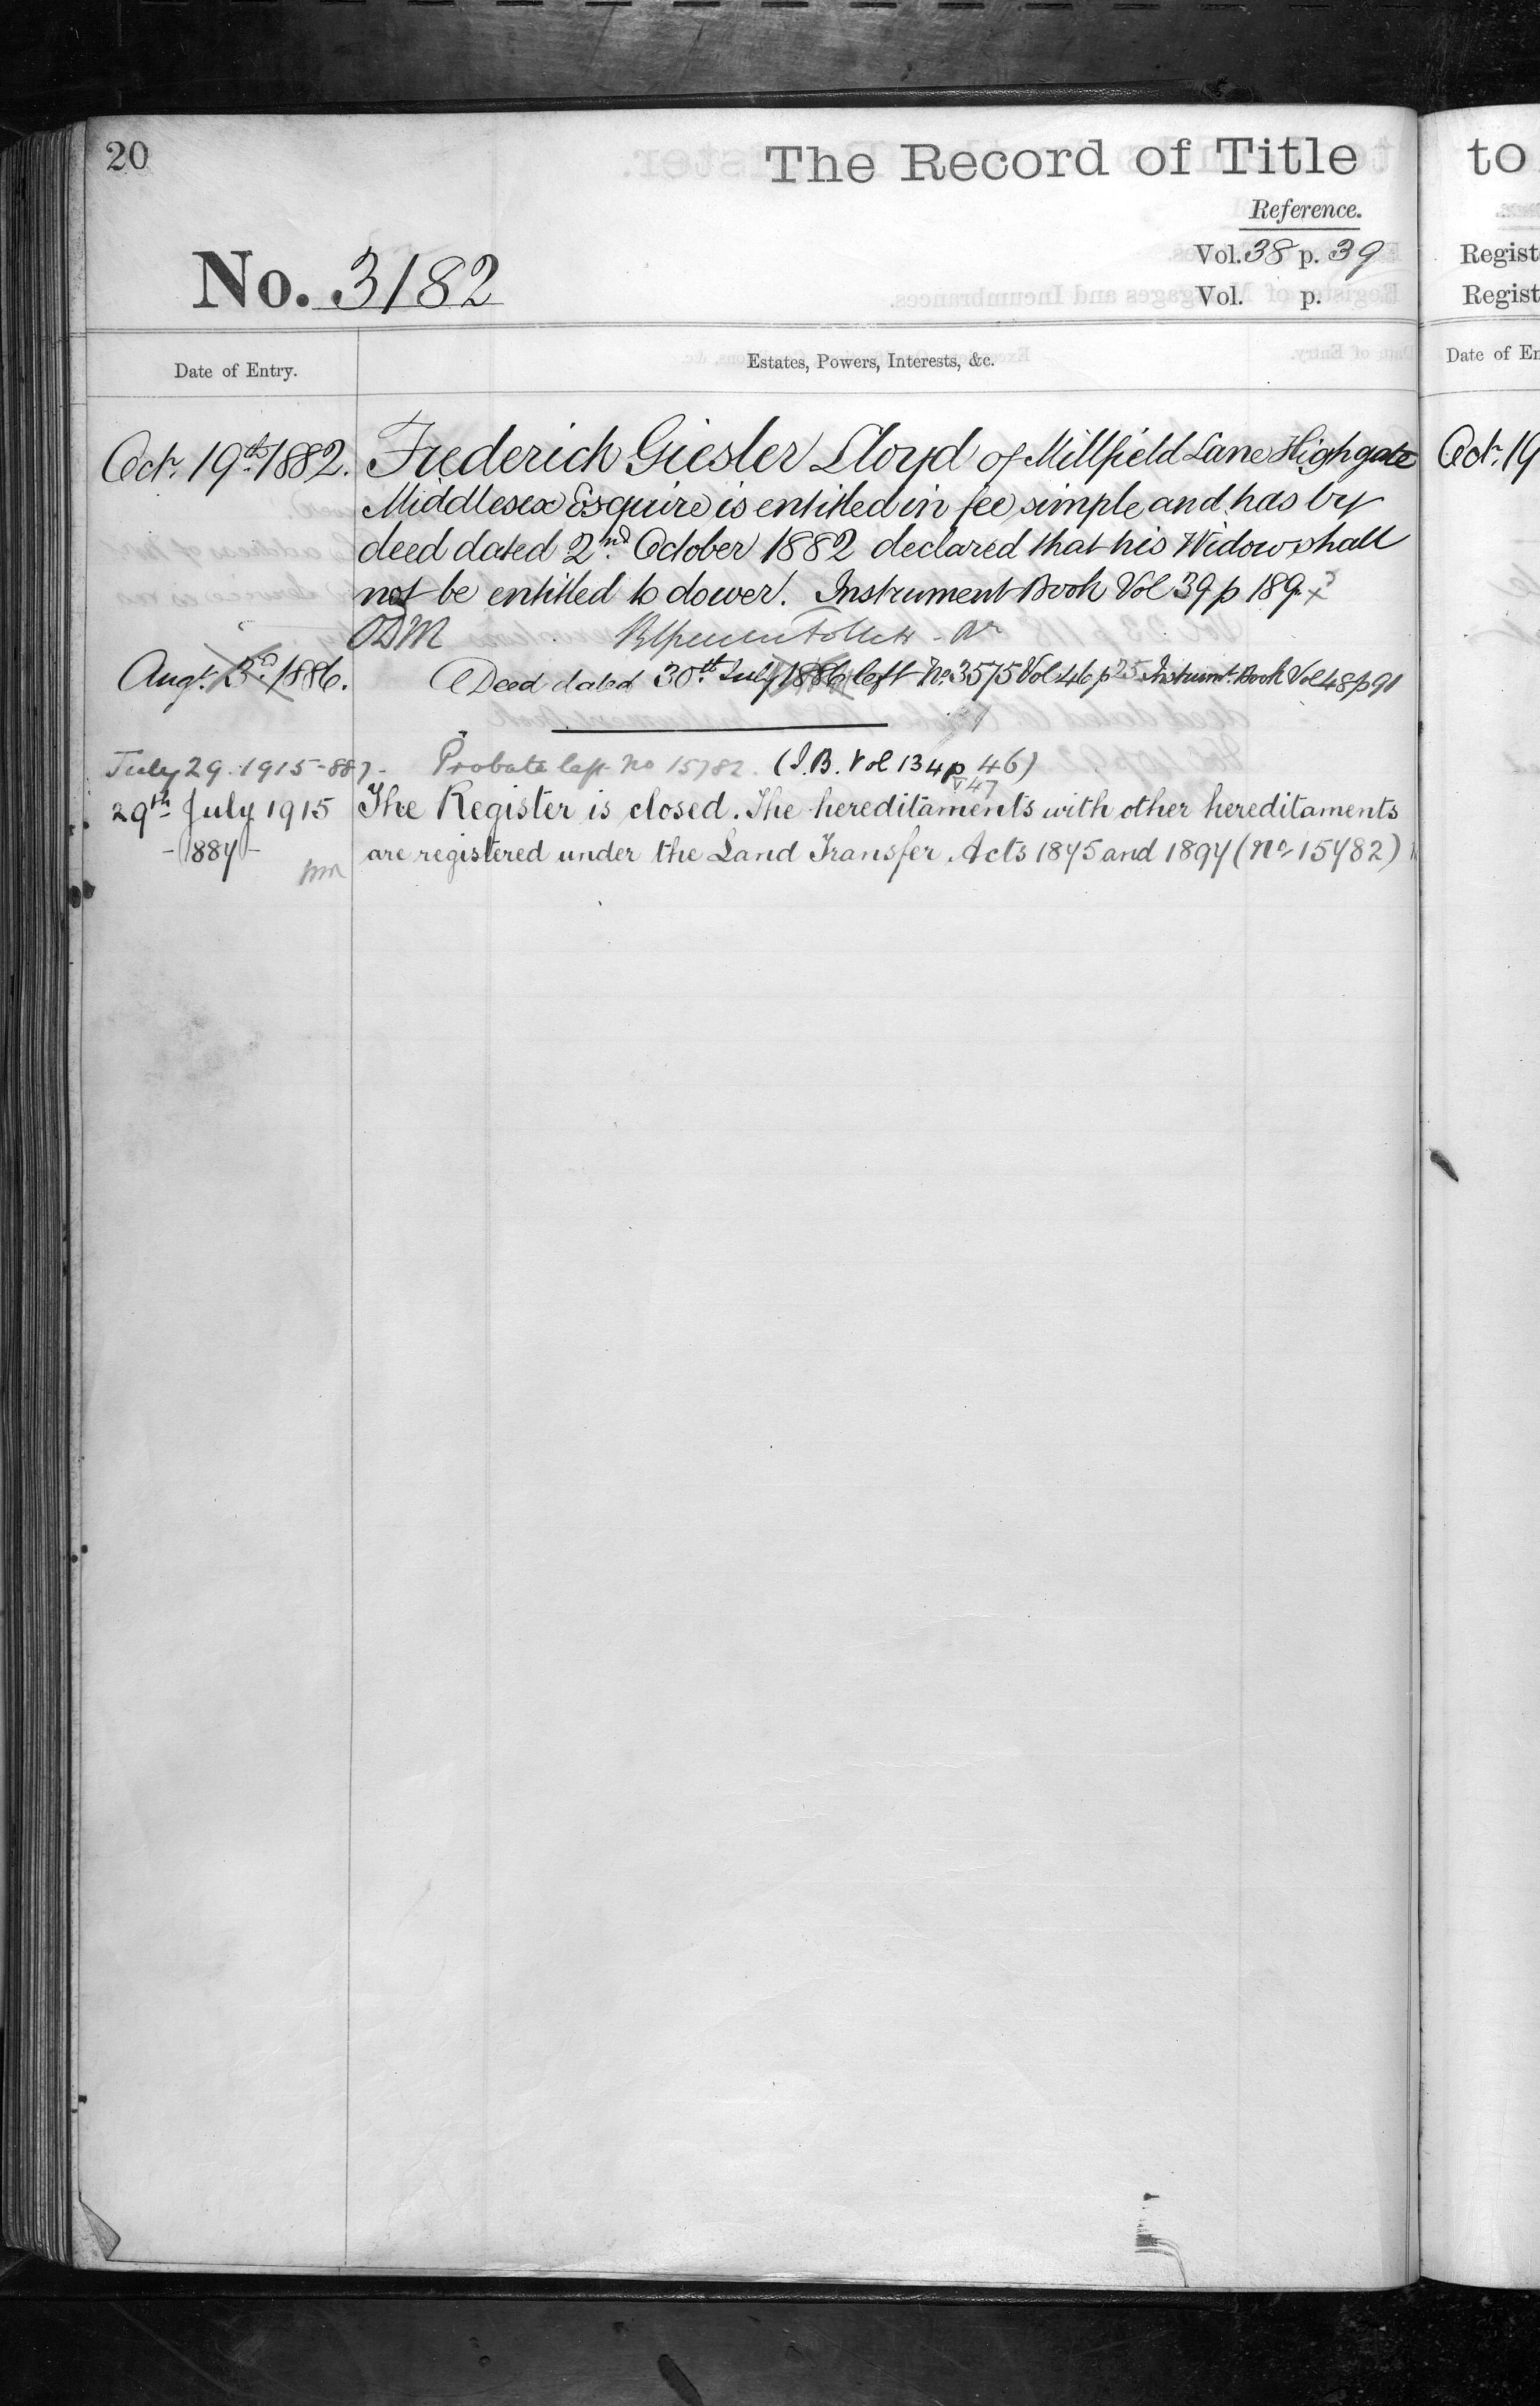 20
The Record of Title
to
Reference.
No. 3182
Vol. 38 p. 39
Regist
Vol. p.
Regist
Date of Entry.
Estates, Powers, Interests, &c.
Date of En
Octr. 19th 1882. Frederick Giesler Lloyd of Millfield Lane Highgate
Octr. 19
Middlesex Esquire is entitled in fee simple and has by
deed dated 2nd October 1882 declared that his Widow shall
not be entitled to dower. Instrument Book Vol 39 p 189.
ODM
Augt. 3rd 1886. A Deed dated 30th July 1886 left No. 3575 Vol 46 p 25 Instrumt. Book Vol 48 p 91
July 29. 1915 - 887 - Probate left no 15782. (I.B. Vol 134 p 46)
v 47
29th July 1915 The Register is closed. The hereditaments with other hereditaments
- 887 - are registered under the Land Transfer Acts 1875 and 1897 (No 15782)